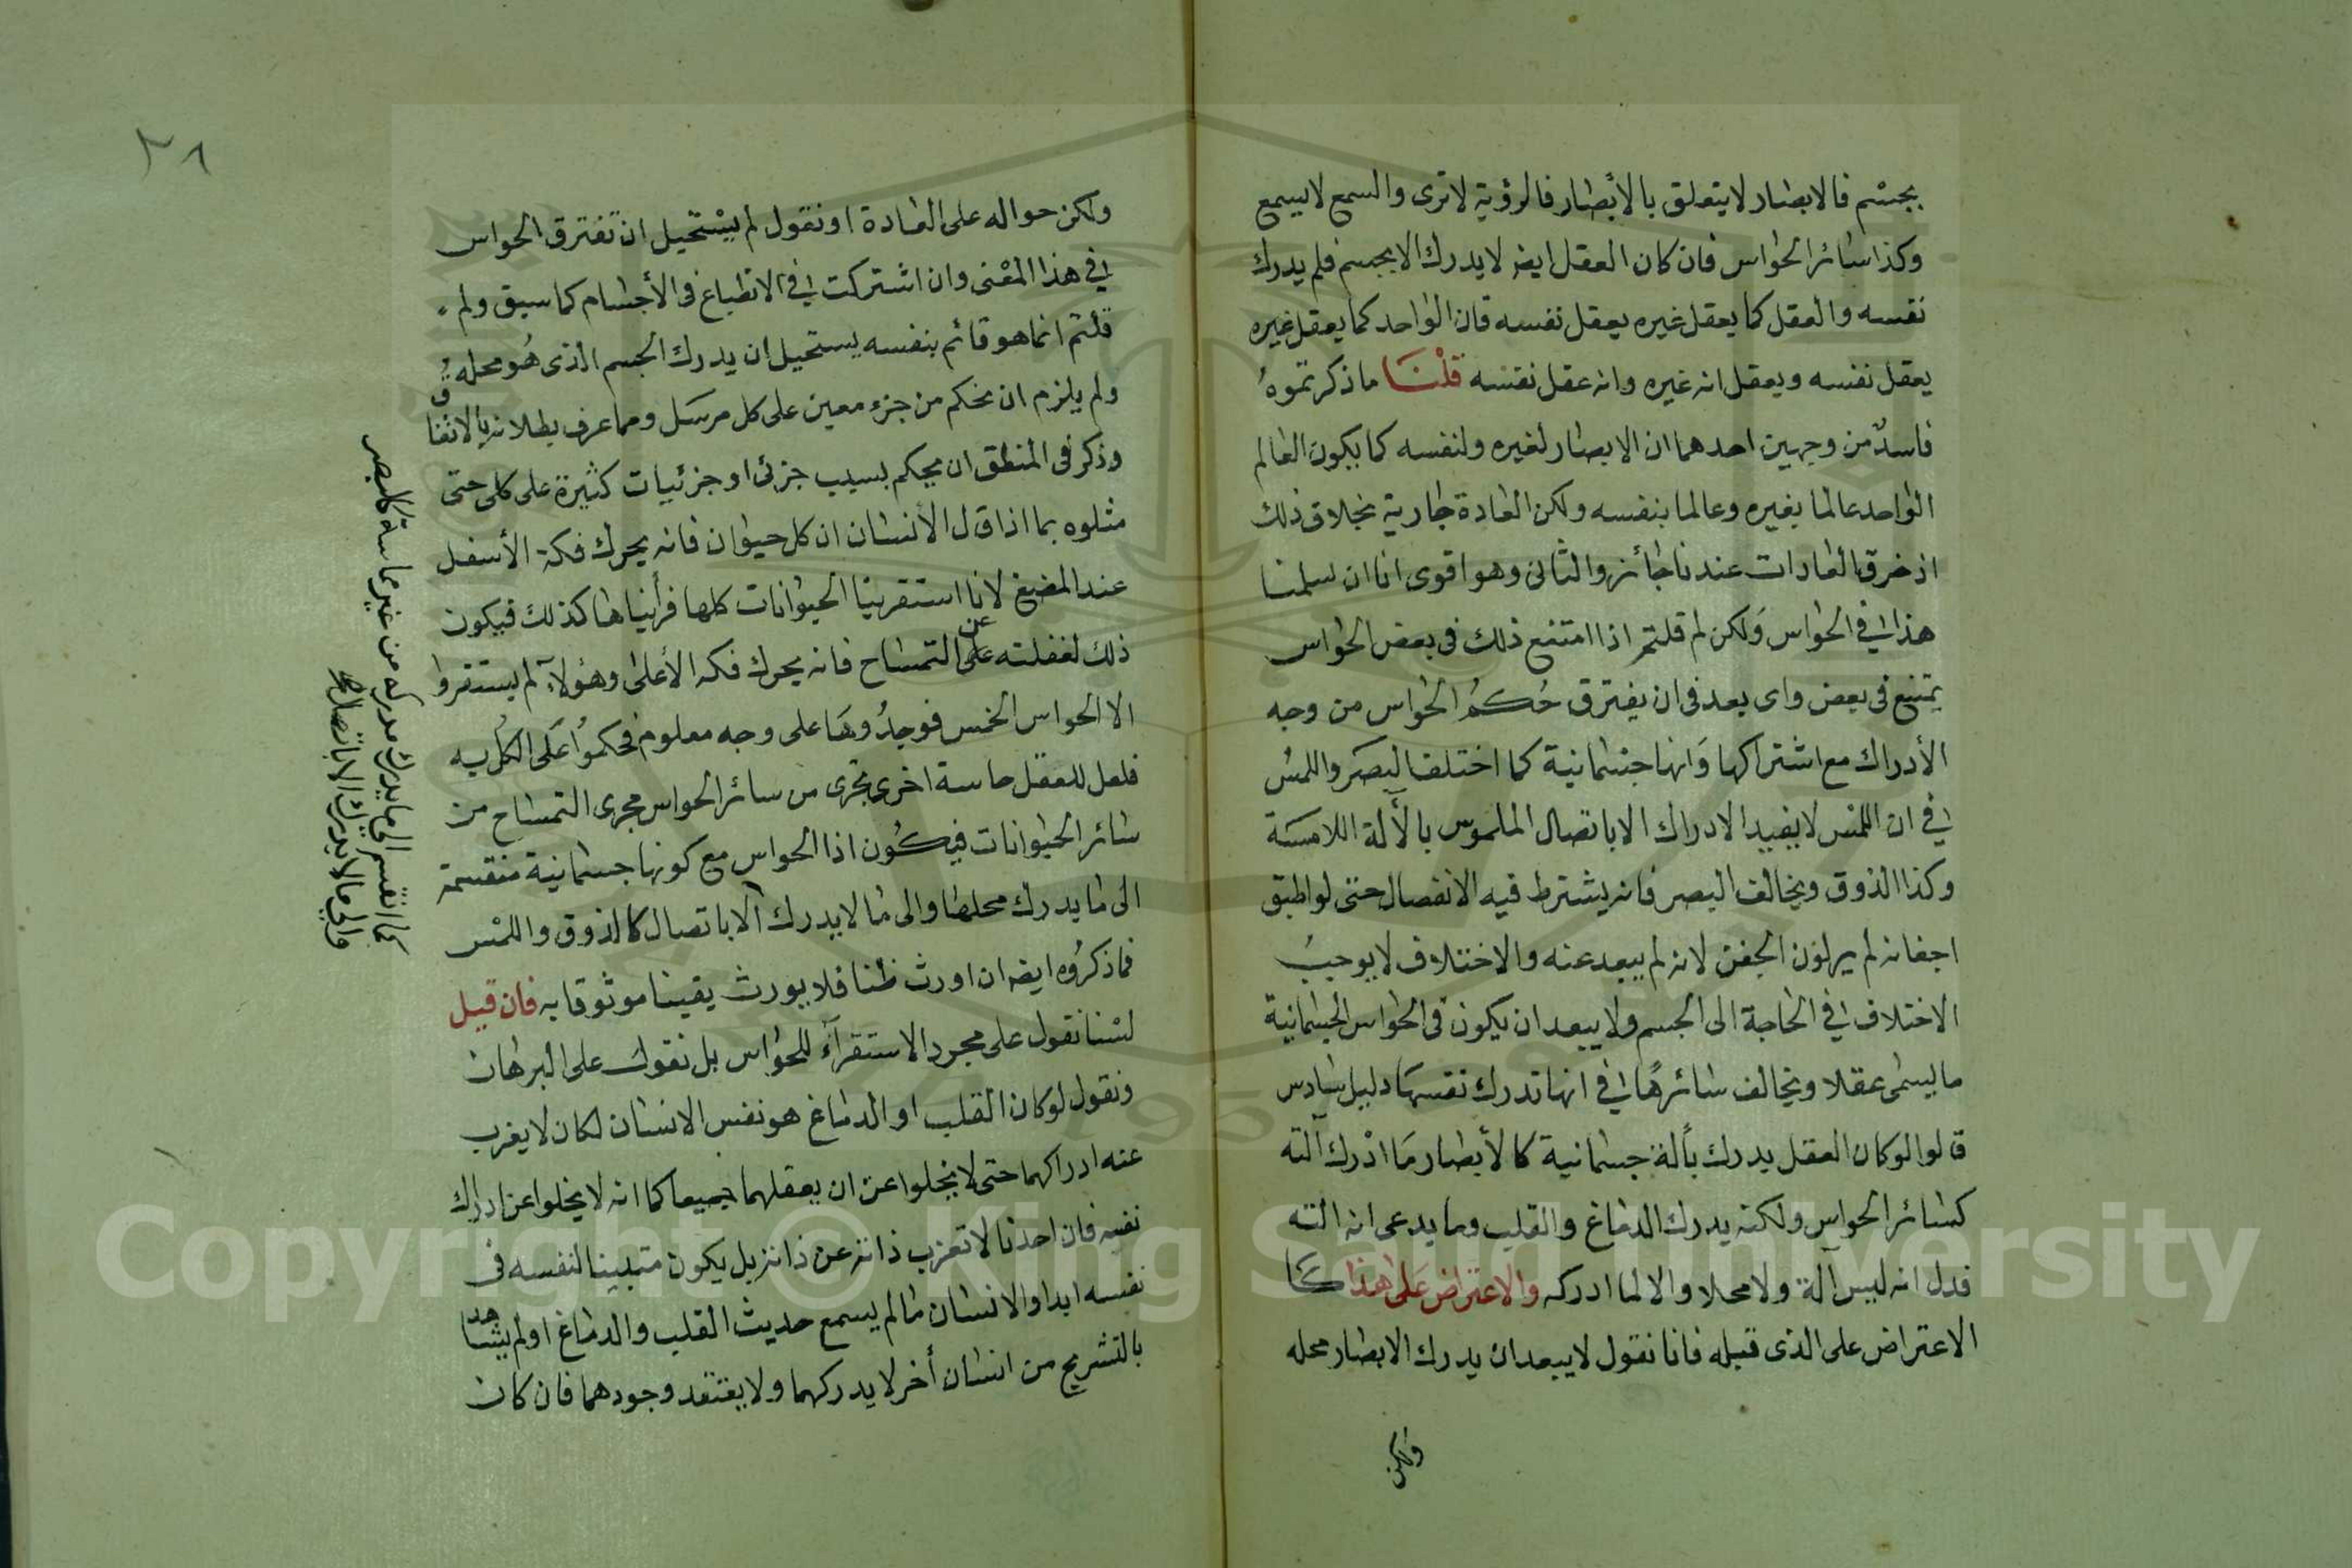 بجسم فالابصار لا يتعلق بالأبصار فالرؤية لا ترى والسمع لا يسمع
وكذا سائر الحواس فان كان العقل ايضا لا يدرك الا بجسم فلم يدرك
نفسه والعقل كما يعقل غيره يعقل نفسه فان الواحد كما يعقل غيره
يعقل نفسه ويعقل انه غيره وانه عقل نفسه قلنا ما ذكرتموه
فاسد من وجهين احدهما ان الابصار لغيره ولنفسه كما يكون العالم
الواحد عالما بغيره وعالما بنفسه ولكن العادة جارية بخلاف ذلك
اذ خرق العادات عندنا جائز والثانى وهو اقوى انا ان سلمنا
هذا فى الحواس ولكن لم قلتم اذا امتنع ذلك فى بعض الحواس
يمتنع فى بعض واى بعد فى ان يفترق حكم الحواس من وجه
الأدراك مع اشتراكها وانها جسمانية كما اختلف البصر واللمس
فى ان اللمس لا يفيد الادراك الا باتصال الملموس بالآلة اللامسة
وكذا الذوق ويخالف البصر فانه يشترط فيه الانفصال حتى لو اطبق
اجفانه لم ير لون الجفن لانه لم يبعد عنه والاختلاف لا يوجب
الاختلاف فى الحاجة الى الجسم ولا يبعد ان يكون فى الحواس الجسمانية
ما يسمى عقلا ويخالف سائرها فى انها تدرك نفسها دليل سادس
قالوا لو كان العقل يدرك بألة جسمانية كالأبصار ما ادرك آلته
كسائر الحواس ولكنه يدرك الدماغ والقلب وما يدعى انه الته
فدل انه ليس آلة ولا محلا والا لما ادركه والاعتراض على هذا كا
الاعتراض على الذى قبله فانا نقول لا يبعد ان يدرك الابصار محله
ولكن
٢٨
ولكن حواله على العادة او نقول لم يستحيل ان تفترق الحواس
فى هذا المعنى وان اشتركت فى الانطباع فى الأجسام كما سبق ولم
قلتم انما هو قائم بنفسه يستحيل ان يدرك الجسم الذى هو محله
ولم يلزم ان نحكم من جزء معين على كل مرسل ومما عرف بطلانه بالاتفاق
وذكر فى المنطق ان يحكم بسبب جزئى او جزئيات كثيرة على كلى حتى
مثلوه بما اذا قال الأنسان ان كل حيوان فانه يحرك فكه الأسفل
عند المضغ لانا استقرينا الحيوانات كلها فرأيناها كذلك فيكون
ذلك لغفلته على عن التمساح فانه يحرك فكه الأعلى وهؤلاء لم يستقروا
الا الحواس الخمس فوجدوها على وجه معلوم فحكموا على الكل به
فلعل للعقل حاسة اخرى تجرى من سائر الحواس مجرى التمساح من
سائر الحيوانات فيكون اذا الحواس مع كونها جسمانية منقسمة
الى ما يدرك محلها والى ما لا يدرك الا باتصال كالذوق واللمس
فما ذكروه ايضا ان اورث ظنا فلا يورث يقينا موثوقا به فان قيل
لسنا نقول على مجرد الاستقراء للحواس بل نقول على البرهان
ونقول لو كان القلب او الدماغ هو نفس الانسان لكان لا يغرب
عنه ادراكهما حتى لا يخلوا عن ان يعقلهما جميعا كما انه لا يخلوا عن ادراك
نفسه فان احدنا لا تعزب ذاته عن ذاته بل يكون متبينا لنفسه فى
نفسه ابدا والانسان ما لم يسمع حديث القلب والدماغ او لم يشاهد
بالتشريح من انسان أخر لا يدركهما ولا يعتقد وجودهما فان كان
كما انقسم الى ما يدرك مدركه من غير مماسة كالبصر
والى ما لا يدرك الا باتصال
Copyright © King Saud University